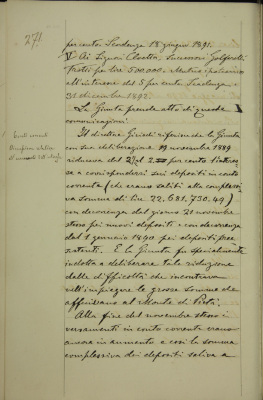 271
per cento. Scadenza 18 giugno 1891.
V. Ai Signori Successori
Frotti per lire 500.000. Mutuo
all'interesse del 5 per cento Scadenza
31 dicembre 1892.
La Giunta prende atto di queste
comunicazioni.
Conti correnti
Il direttore riferisce che la Giunta
con sua deliberazione 19 novembre 1889
riduceva del 2 per cento l'interes-
se a corrispondersi sui depositi in conto
corrente (che erano saliti alla complessi-
va somma di lire 22,681,730.49)
con decorrenza dal giorno 21 novembre
stesso pei nuovi depositi e con decorrenza
dal 1 gennaio 1890 pei depositi pree-
sistenti. E la Giunta fu specialmente
indotta a deliberare tale riduzione
dalle difficoltà che incontrava
nell'impiegare le grosse somme che
affluivano al Monte di Pietà.
Alla fine del novembre stesso i
versamenti in conto corrente erano
ancora in aumento e così la somma
complessiva dei depositi saliva a